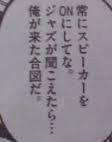 常にスピーカーを
ONにしてな。
ジャズが聞こえたら…
俺が来た合図だ。